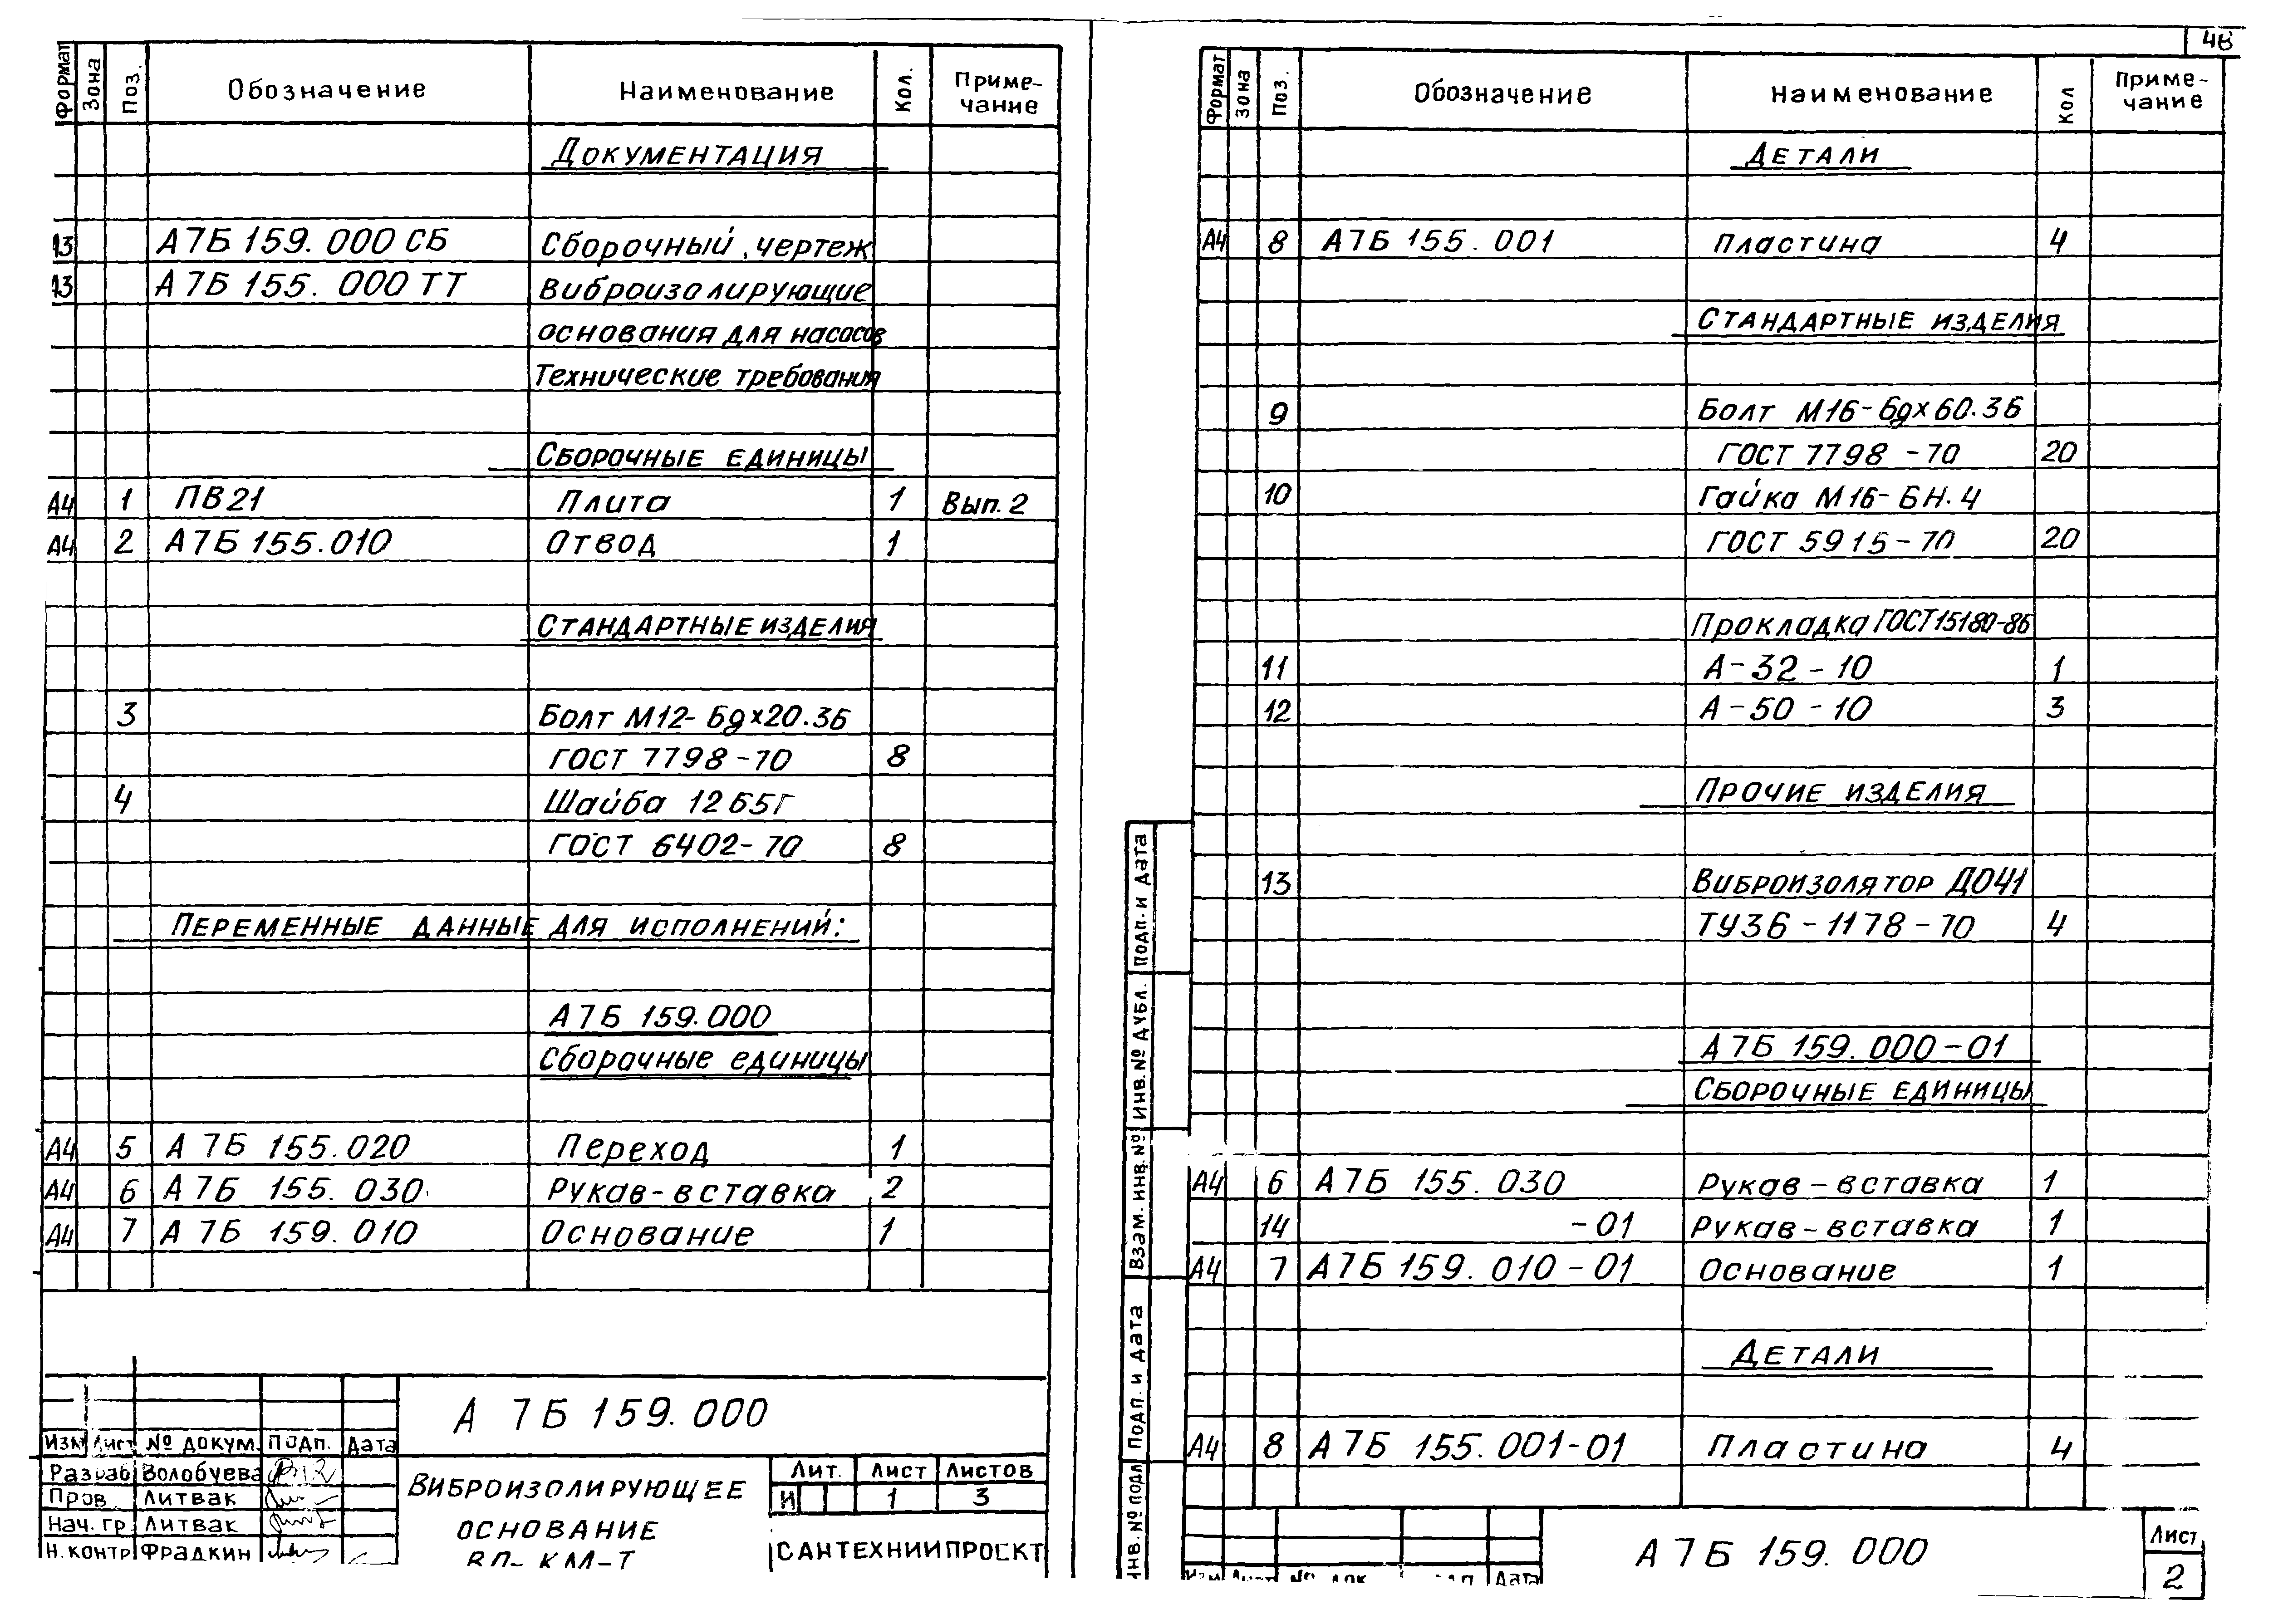 48
Формат Зона Поз. Обозначение Наименование Кол. Приме-
чание
Документация
А7Б 159.000 СБ Сборочный чертеж
А7Б 155.000 ТТ Виброизолирующие
основания для насосов
Технические требования
Сборочные единицы
А4 1 ПВ21 Плита 1 Вып. 2
А4 2 А7Б 155.010 Отвод 1
Стандартные изделия
3 Болт М12-6gх20.36
ГОСТ 7798-70 8
4 Шайба 12 65Г
ГОСТ 6402-70 8
Переменные данные для исполнений:
А7Б 159.000
Сборочные единицы
А4 5 А 7Б 155.020 Переход 1
А4 6 А 7Б 155.030 Рукав-вставка 2
А4 7 А 7Б 159.010 Основание 1
А 7Б 159.000
Изм Лист № докум. Подп. Дата
Разраб Волобуева
Пров. Литвак
Нач. гр Литвак
Н.контр Фрадкин
Виброизолирующее
основание
ВП-КМ-Т
Лит. Лист Листов
И 1 3
САНТЕХНИИПРОЕКТ
Формат Зона Поз. Обозначение Наименование Кол Приме-
чание
Детали
А4 8 А7Б 155.001 Пластина 4
Стандартные изделия
9 Болт М16-6gх60.36
ГОСТ 7798-70 20
10 Гайка М16-6Н.4
ГОСТ 5915-70 20
Прокладка ГОСТ 15180-86
11 А-32-10 1
12 А-50-10 3
Прочие изделия
13 Виброизолятор ДО41
ТУ36-1178-70 4
А7Б 159.000-01
Сборочные единицы
А4 6 А7Б 155.030 Рукав-вставка 1
14 -01 Рукав-вставка 1
А4 7 А7Б 159.010-01 Основание 1
Детали
А4 8 А7Б 155.001-01 Пластина 4
Подп. и дата
Инв. № дубл.
Взам. инв. №
Подп. и дата
Инв. № подл
А 7Б 159.000
Лист
2
Дата